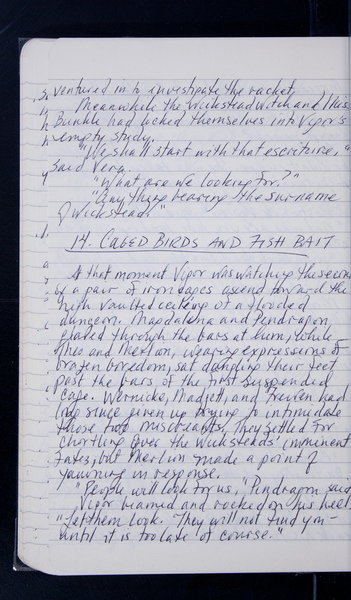 ventured in to investigate the racket.
Meanwhile the Wickstead witch and Miss
Bunkle had locked themselves into Vigor's
empty study.
"We shall start with that escritoire,"
said Vera.
"What are we looking for?"
"Anything bearing the surname
of Wickstead."
14. CAGED BIRDS AND FISH BAIT
At that moment Vigor was watching the second
of a pair of iron cages ascend toward the
high vaulted ceiling of a flooded
dungeon. Magdalena and Pendragon
glared through the bars at him, while
Theo and Merlon, wearing expressions of
brazen boredom, sat dangling their feet
past the bars of the first suspended
cage. Wernicke, Madjett, and had
long since given up trying to intimidate
those two miscreants. They settled for
chortling over the Wicksteads' imminent
fates, but Merlon made a point of
yawning in response.
"People will look for us," Pendragon said.
Vigor beamed and rocked on his heels.
"Let them look. They will not find you—
until it is too late of course."